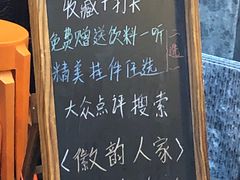 收藏+打卡
免费赠送饮料一听
精美挂件任选
二选一
大众点评搜索
<徽韵人家>